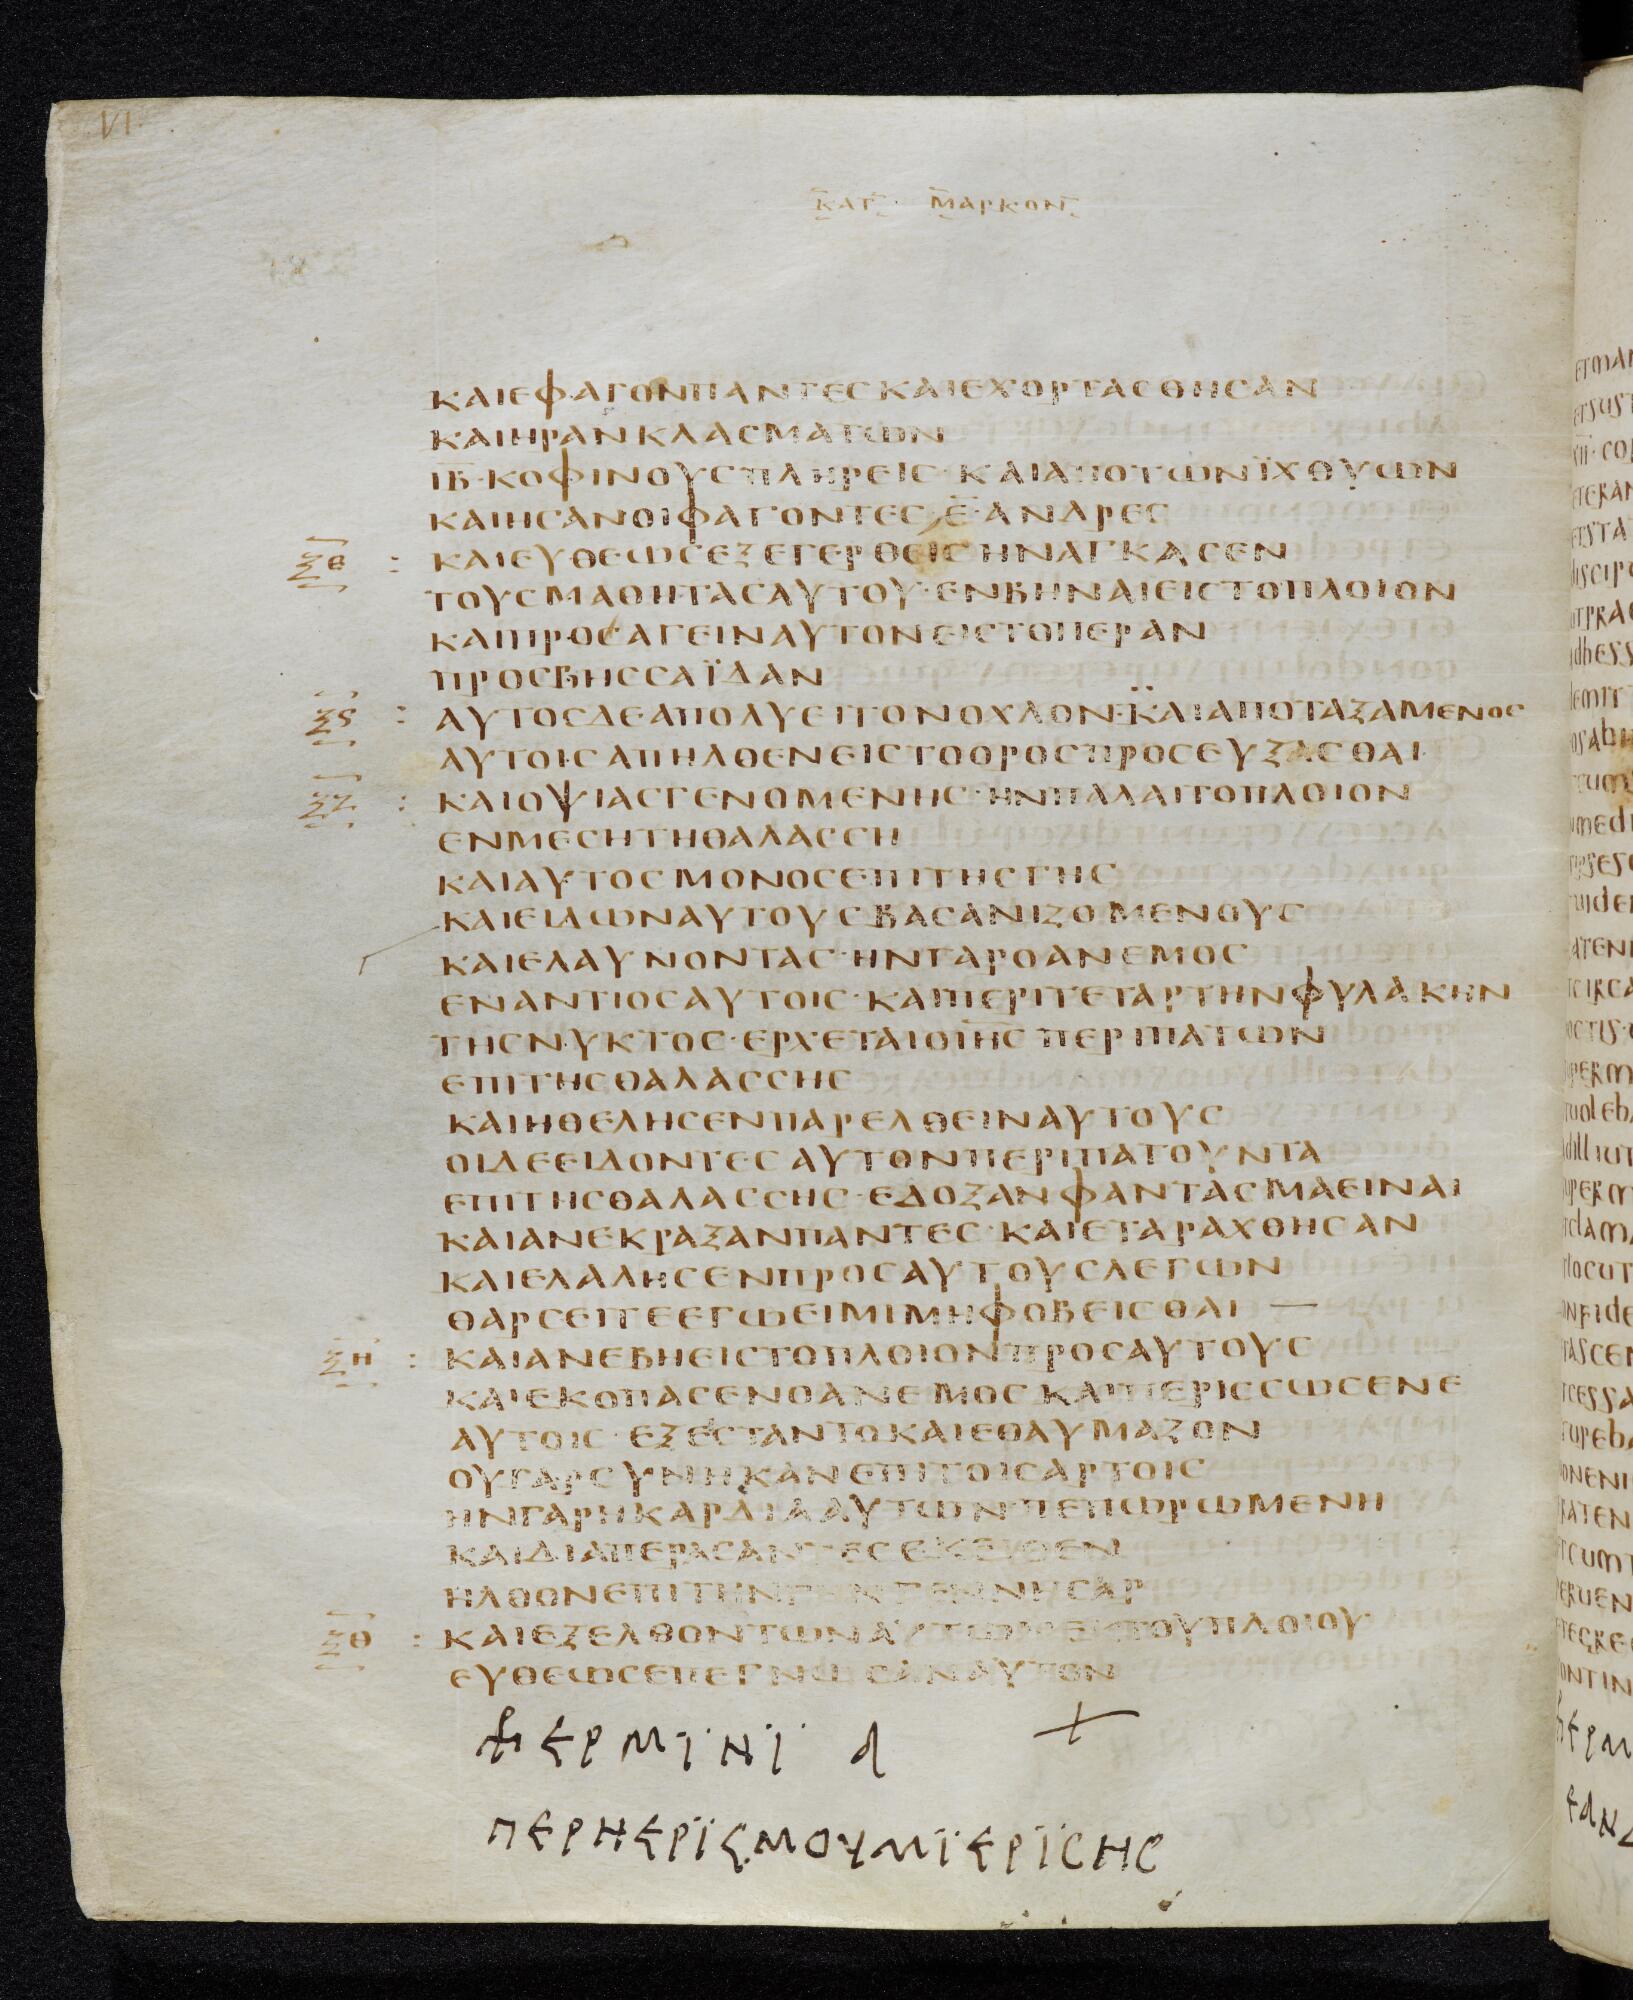 VI
ΚΑΤ· ΜΑΡΚΟΝ
ΚΑΙΕΦΑΓΟΝΠΑΝΤΕϹΚΑΙΕΧΟΡΤΑϹΘΗϹΑΝ
ΚΑΙΗΡΑΝΚΛΑϹΜΑΤΩΝ
ΙΒ·ΚΟΦΙΝΟΥϹΠΛΗΡΕΙϹ·ΚΑΙΑΠΟΤΩΝΪΧΘΥΩΝ
ΚΑΙΗϹΑΝΟΙΦΑΓΟΝΤΕϹ·Ε̅·ΑΝΔΡΕϹ
ΞΕ : ΚΑΙΕΥΘΕΩϹΕΞΕΓΕΡΘΕΙϹΗΝΑΓΚΑϹΕΝ
ΤΟΥϹΜΑΘΗΤΑϹΑΥΤΟΥ·ΕΝΒΗΝΑΙΕΙϹΤΟΠΛΟΙΟΝ
ΚΑΙΠΡΟϹΑΓΕΙΝΑΥΤΟΝΕΙϹΤΟΠΕΡΑΝ
ΠΡΟϹΒΗϹϹΑΪΔΑΝ
ΞϚ : ΑΥΤΟϹΔΕΑΠΟΛΥΕΙΤΟΝΟΧΛΟΝ·ΚΑΙΑΠΟΤΑΞΑΜΕΝΟϹ
ΑΥΤΟΙϹΑΠΗΛΘΕΝΕΙϹΤΟΟΡΟϹΠΡΟϹΕΥΞΑϹΘΑΙ·
ΞΖ : ΚΑΙΟΨΙΑϹΓΕΝΟΜΕΝΗϹ·ΗΝΠΑΛΑΙΤΟΠΛΟΙΟΝ
ΕΝΜΕϹΗΤΗΘΑΛΑϹϹΗ
ΚΑΙΑΥΤΟϹΜΟΝΟϹΕΠΙΤΗϹΓΗϹ
ΚΑΙΕΙΔΩΝΑΥΤΟΥϹΒΑϹΑΝΙΖΟΜΕΝΟΥϹ
ΚΑΙΕΛΑΥΝΟΝΤΑϹ·ΗΝΓΑΡΟΑΝΕΜΟϹ
ΕΝΑΝΤΙΟϹΑΥΤΟΙϹ·ΚΑΙΠΕΡΙΤΕΤΑΡΤΗΝΦΥΛΑΚΗΝ
ΤΗϹΝΥΚΤΟϹ·ΕΡΧΕΤΑΙΟΙ̅Η̅Ϲ̅ΠΕΡΙΠΑΤΩΝ
ΕΠΙΤΗϹΘΑΛΑϹϹΗϹ
ΚΑΙΗΘΕΛΗϹΕΝΠΑΡΕΛΘΕΙΝΑΥΤΟΥϹ
ΟΙΔΕΕΙΔΟΝΤΕϹΑΥΤΟΝΠΕΡΙΠΑΤΟΥΝΤΑ
ΕΠΙΤΗϹΘΑΛΑϹϹΗϹ·ΕΔΟΞΑΝΦΑΝΤΑϹΜΑΕΙΝΑΙ
ΚΑΙΑΝΕΚΡΑΞΑΝΠΑΝΤΕϹ·ΚΑΙΕΤΑΡΑΧΘΗϹΑΝ
ΚΑΙΕΛΑΛΗϹΕΝΠΡΟϹΑΥΤΟΥϹΛΕΓΩΝ
ΘΑΡϹΕΙΤΕΕΓΩΕΙΜΙΜΗΦΟΒΕΙϹΘΑΙ —
ΞΗ : ΚΑΙΑΝΕΒΗΕΙϹΤΟΠΛΟΙΟΝΠΡΟϹΑΥΤΟΥϹ
ΚΑΙΕΚΟΠΑϹΕΝΟΑΝΕΜΟϹΚΑΙΠΕΡΙϹϹΩϹΕΝΕ
ΑΥΤΟΙϹ·ΕΞΕϹΤΑΝΤΟΚΑΙΕΘΑΥΜΑΖΟΝ
ΟΥΓΑΡϹΥΝΗΚΑΝΕΠΙΤΟΙϹΑΡΤΟΙϹ
ΗΝΓΑΡΗΚΑΡΔΙΑΑΥΤΩΝΠΕΠΩΡΩΜΕΝΗ
ΚΑΙΔΙΑΠΕΡΑϹΑΝΤΕϹΕΚΕΙΘΕΝ
ΗΛΘΟΝΕΠΙΤΗΝΓΗΝΓΕΝΝΗϹΑΡ
ΞΘ : ΚΑΙΕΞΕΛΘΟΝΤΩΝΑΥΤΩΝΕΚΤΟΥΠΛΟΙΟΥ·
ΕΥΘΕΩϹΕΠΕΓΝΩϹΑΝΑΥΤΟΝ
ΕΡΜΪΝΪ Α +
ΠΕΡΗΕΡΪϹΜΟΥΜΪΕΡΪϹΗϹ